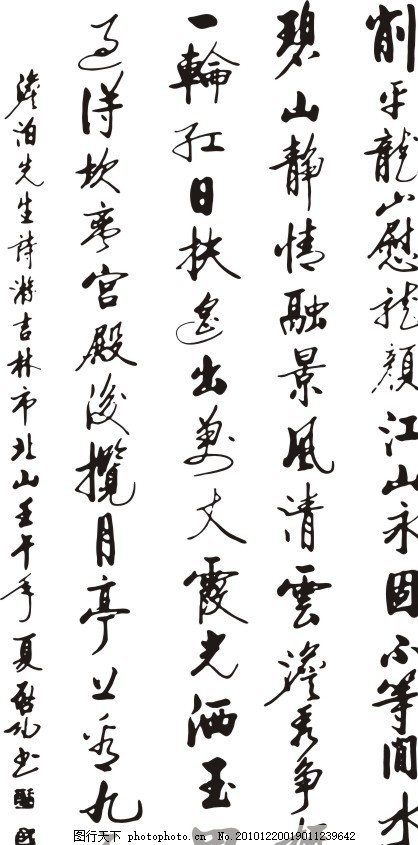 削平龍山慰龍顏江山永固不等閒水
碧山靜情融景風清雲澹秀爭
一輪紅日扶遙出萬丈霞光洒玉
過得坎離宮殿後攬月亭上看九
澹泊先生詩游吉林市北山壬午年夏啓凡书
图行天下 PHOTOPHOTO.CN No.20101220019011239642